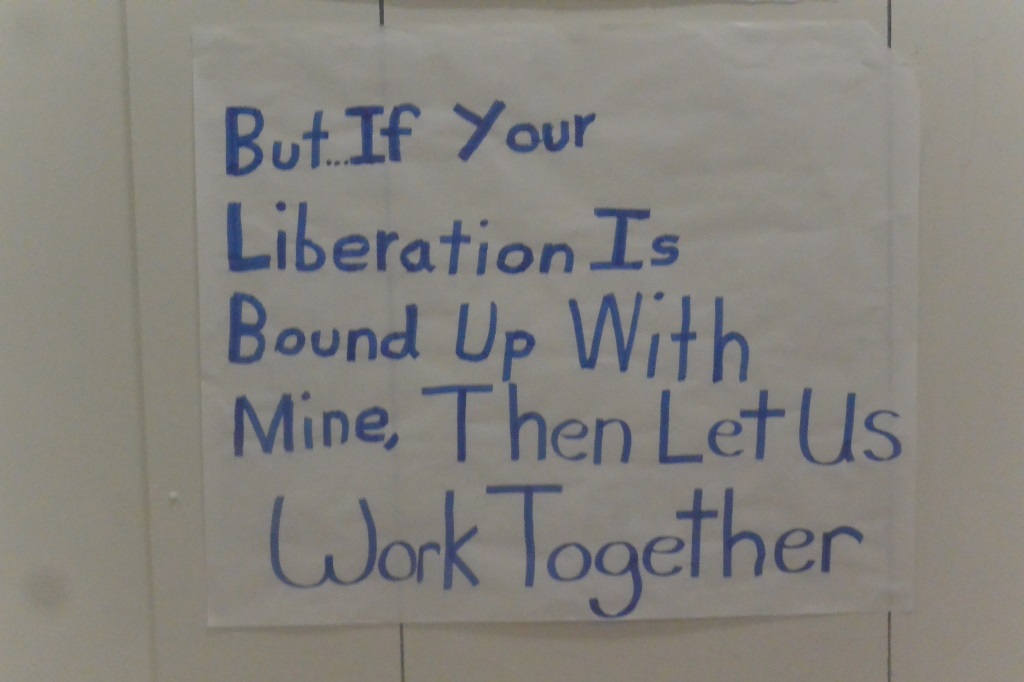 But...If Your
Liberation Is
Bound Up With
Mine, Then Let Us
Work Together